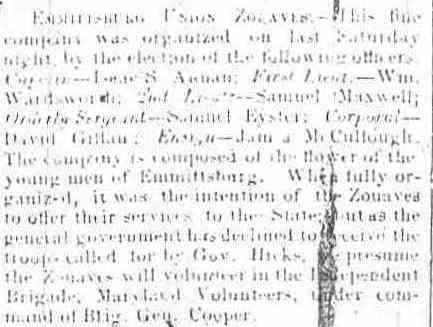 EMMITTSBURG UNION ZOUAVES.—This fine
company was organized on last Saturday
night, by the election of the following officers.
Captain—Isaac S. Annan; First Lieut.—Wm.
Wardsworth; 2nd Lieut—Samuel Maxwell;
Orderly Sergeant—Samuel Eyster; Corporal—
David Gillan; Ensign—James McCullough.
The company is composed of the flower of the
young men of Emmittsburg. When fully or-
ganized, it was the intention of the Zouaves
to offer their services to the State; but as the
general government has declined to receive the
troops called for by Gov. Hicks, we presume
the Zouaves will volunteer in the Independent
Brigade, Maryland Volunteers, under com-
mand of Brig. Gen. Cooper.